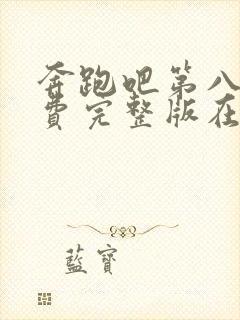 奔跑吧第八
费完整版在
藍寶